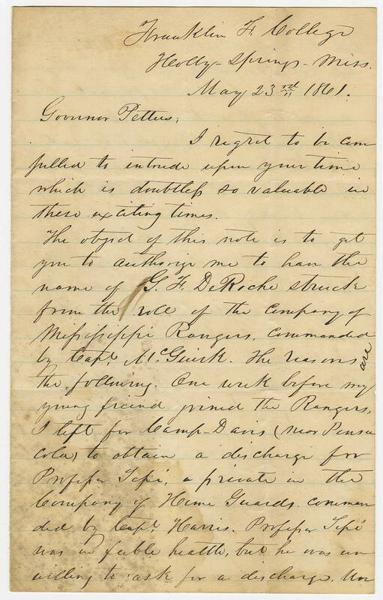 Franklin F College
Holly-Springs-Miss.
May 23rd 1861.
Govornor Pettus;
I regret to be com
pelled to intrude upon your time
which is doubtless so valuable in
these exciting times.
The object of this note is to get
you to authorize me to have the
name of G. F. DeRoche struck
from the roll of the company of
Mississippi Rangers, commanded
by Capt. McGuirk. The reasons are
the following. One week before my
young friend joined the Rangers,
I left for Camp-Davis (near Pensa
cola) to obtain a discharge for
Professor Sepé, a private in the
Company of Home Guards comman
ded by Capt. Harris. Professor Sepé
was in feble health, but he was un
willing to ask for a discharge.